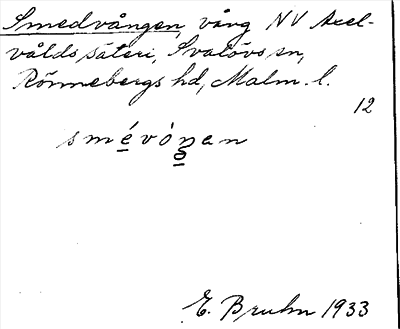 Smedvången, vång NV Axel-
vålds säteri, Svalövs sn,
Rönnebergs hd, Malm. l.
12
smévóŋan
E. Bruhn 1933